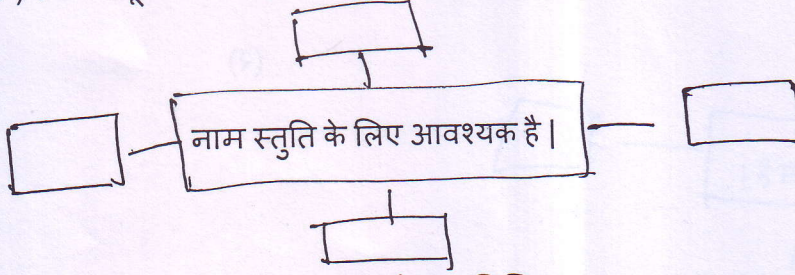 नाम स्तुति के लिए आवश्यक है |